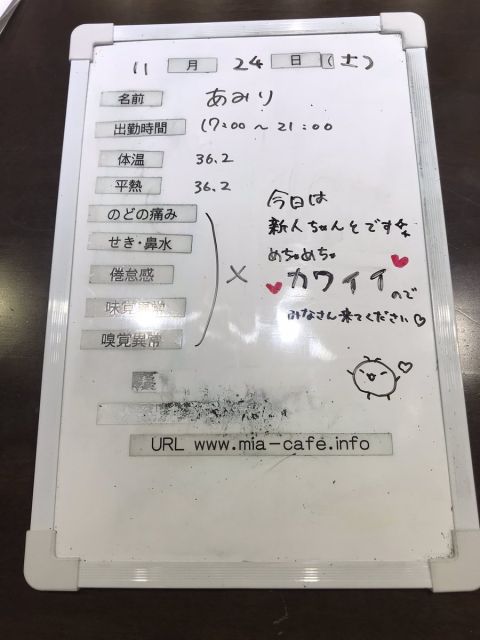 11 月 24 日 (土)
名前 あみり
出勤時間 17:00 ~ 21:00
体温 36.2
平熱 36.2
のどの痛み
せき・鼻水
倦怠感
味覚異常
嗅覚異常
×
今日は
新人ちゃんとです
めちゃめちゃ
カワイイ ので
みなさん来てください♡
URL www.mia-cafe.info